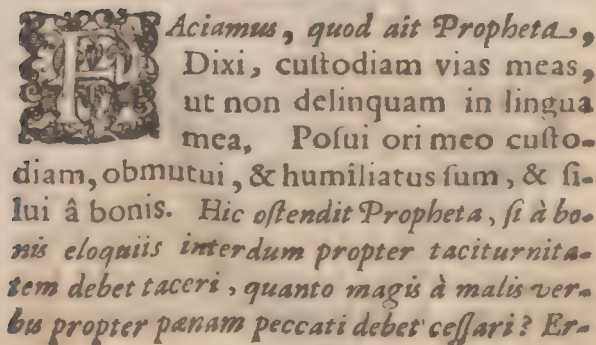 FAciamus, quod ait Propheta,
Dixi, cuſtodiam vias meas,
ut non delinquam in lingua
mea, Poſui ori meo cuſto-
diam, obmutui, & humiliatus ſum, & ſi-
lui â bonis. Hic oſtendit Propheta, ſi à bo-
nis eloquiis interdum propter taciturnita-
tem debet taceri, quanto magis à malis ver-
bis propter pœnam peccati debet ceſſari? Er-